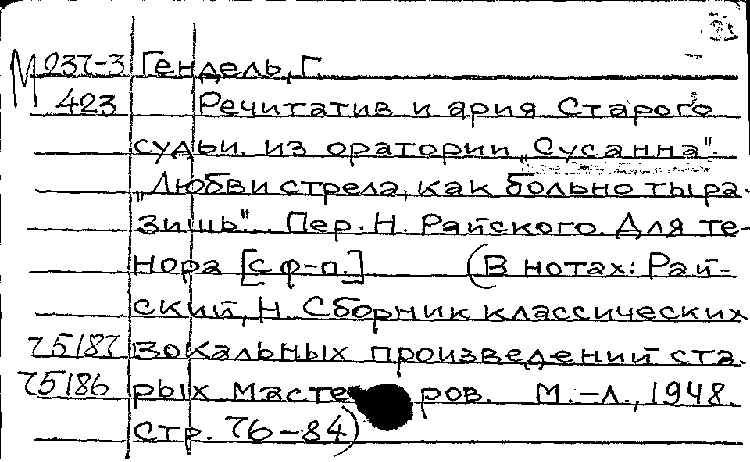 М 037-3 Гендель, Г.
423 Речитатив и ария Старого
судьи. из оратории „Сусанна".
„Любви стрела, как больно ты ра-
зишь". Пер. Н. Райского. Для те-
нора [с ф-п.] (В нотах: Рай-
ский, Н. Сборник классических
75187 вокальных произведений ста
75186 рых масте ров. М.-Л., 1948.
Стр. 76-84)